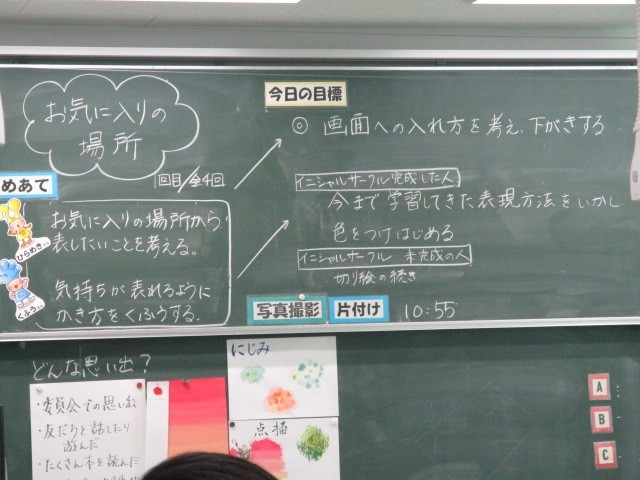 お気に入りの
場所
回目/全4回
めあて
お気に入りの場所から
表したいことを考える。
気持ちが表れるように
かき方をくふうする。
ひらめきぃ
くふう
今日の目標
◎ 画面への入れ方を考え、下がきする
イニシャルサークル完成した人
今まで学習してきた表現方法をいかし
色をつけはじめる
イニシャルサークル 未完成の人
切り絵の続き
写真撮影 片付け 10:55
どんな思い出?
・委員会での思い出
・友だちと話したり
遊んだ
・たくさん本を読んだ
にじみ
点描
A
B
C